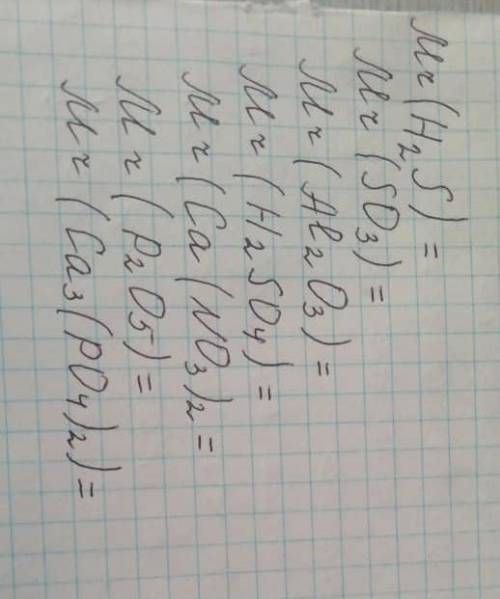 Mr (H2S) =
Mr (SO3) =
Mr (Al2O3) =
Mr (H2SO4) =
Mr (Ca (NO3)2 =
Mr (P2O5) =
Mr (Ca3(PO4)2) =